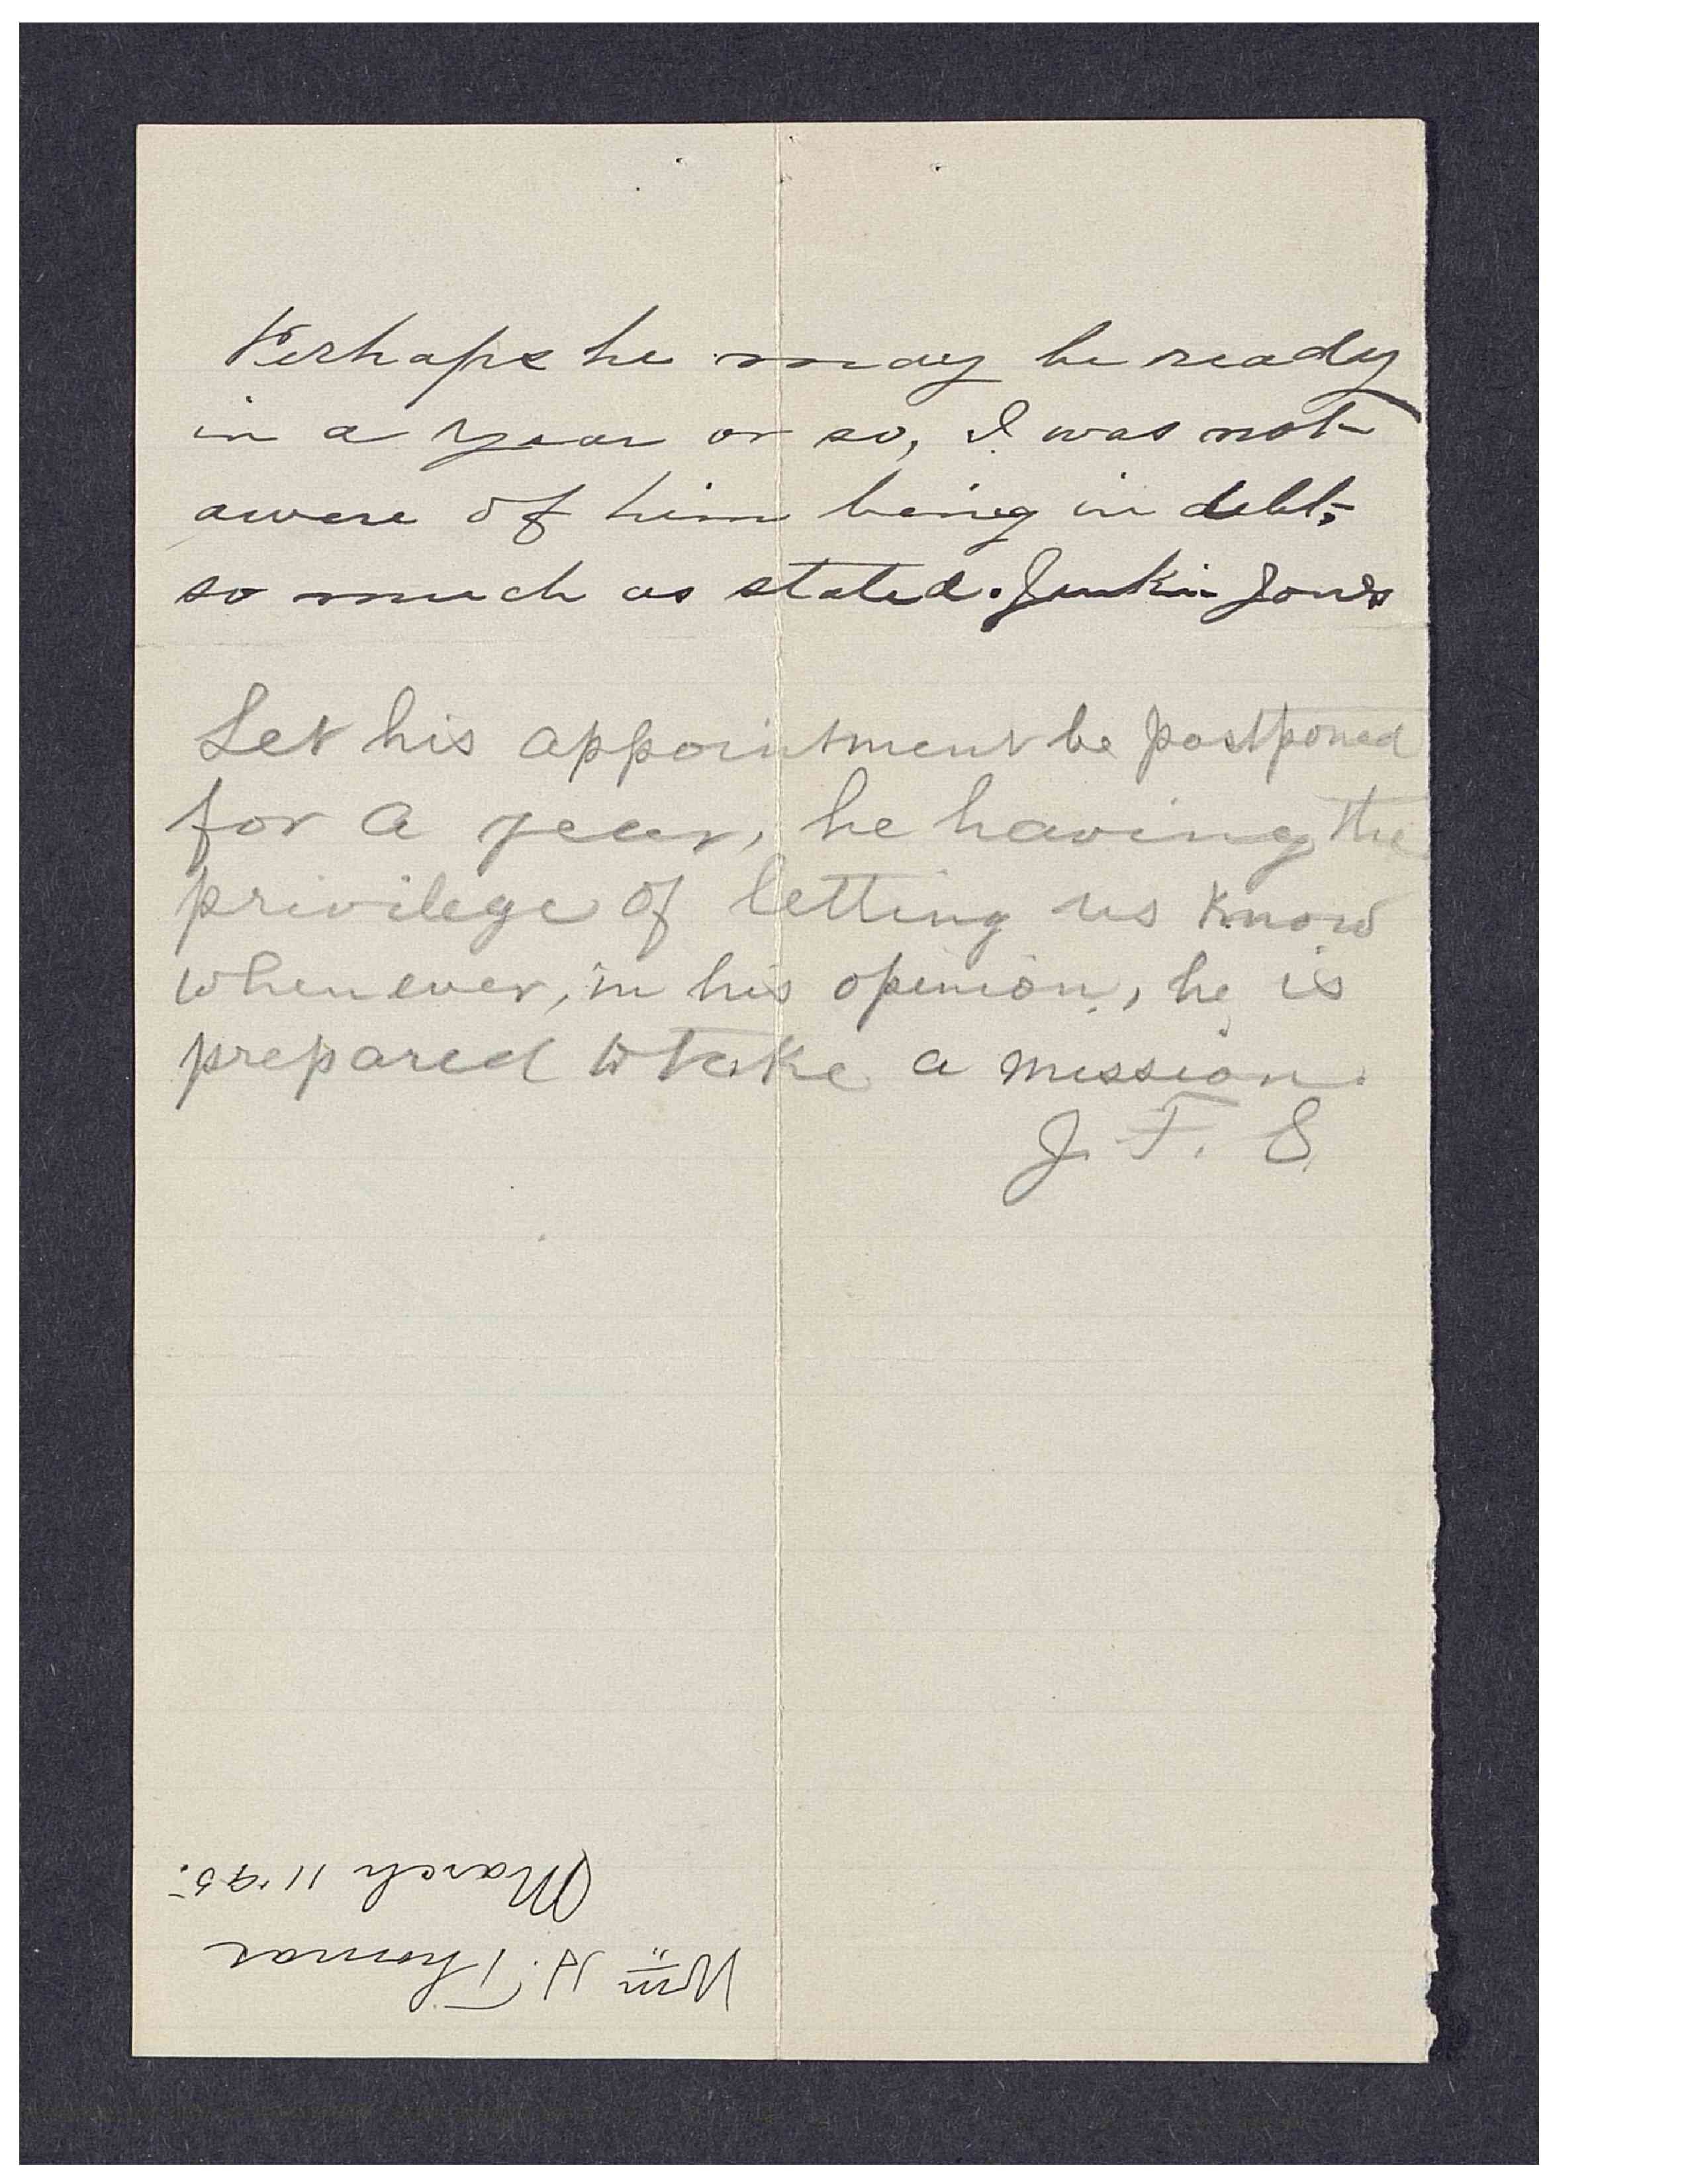 Perhaps he may be ready
in a year or so, I was not
awere of him being in debt,
so much as stated. Jenkin Jones
Let his appointment be postponed
for a year, he having the
privilege of letting us know
whenever, in his opinion, he is
prepared to take a mission.
J. F. S.
Wm H. Thomas
March 11 '95.